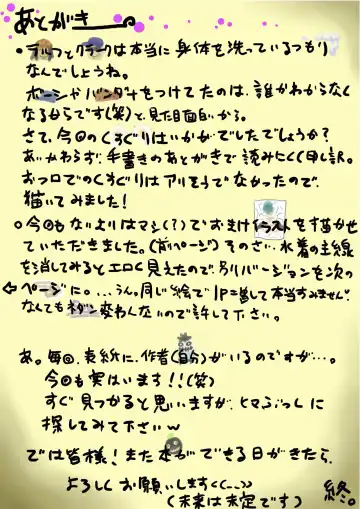 あとがき
・ラルフとクラークは本当に身体を洗っているつもり
なんでしょうね。
ボーシやバンダナをつけてたのは、誰かわからなく
なるからです(笑)と、見た目面白いから。
さて、今回のくすぐりはいかがでしたでしょうか?
あいかわらず、手書きのあとがきで読みにくく申し訳。
おフロでのくすぐりはアリそうでなかったので、
描いてみました!
○今回もないよりはマシ(?)でおまけイラストを描かせ
ていただきました。(前ページ)そのさい、水着の主線
を消してみるとエロく見えたので、別バージョンを次の
←ページに。...うん。同じ絵で1P増して本当すみません。
なんでもネタン変わんないので許して下さい。
あ。毎回、表紙に、作者(自分)がいるのですが…。
今回も実はいます!!(笑)
すぐ見つかると思いますが、ヒマぶっしに
探してみて下さいw
では皆様!また本ができる日がきたら、
よろしくお願いします<(_ _)>
(未来は未定です)
終。